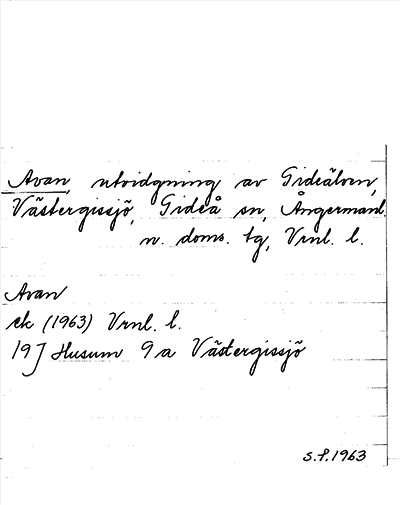 Avan, utvidgning av Gideälven,
Västergissjö, Gideå sn, Ångermanl.
n. doms. tg, Vrnl. l.
Avan
ek (1963) Vrnl. l.
19J Husum 9a Västergissjö
S.P.1963